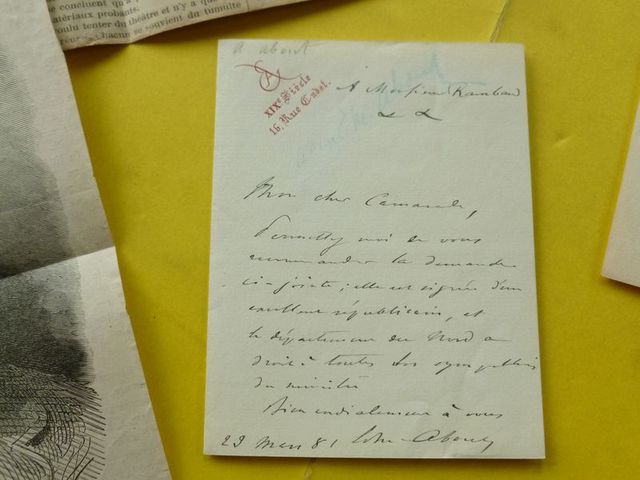 conclument qu'
matériaux probants.
voulu tenter du théâtre et n'y a que
chacun se souvient du tumulte
a about
XIXe Siècle
16, Rue Cadet.
A Monsieur Rambaud
Mon cher Camarade,
Permettez moi de vous
recommander la demande
ci-jointe ; elle est signée d'un
excellent républicain, et
le département du Nord a
droit à toutes les sympathies
du ministre
Bien cordialement à vous
23 Mars 81 Edm About